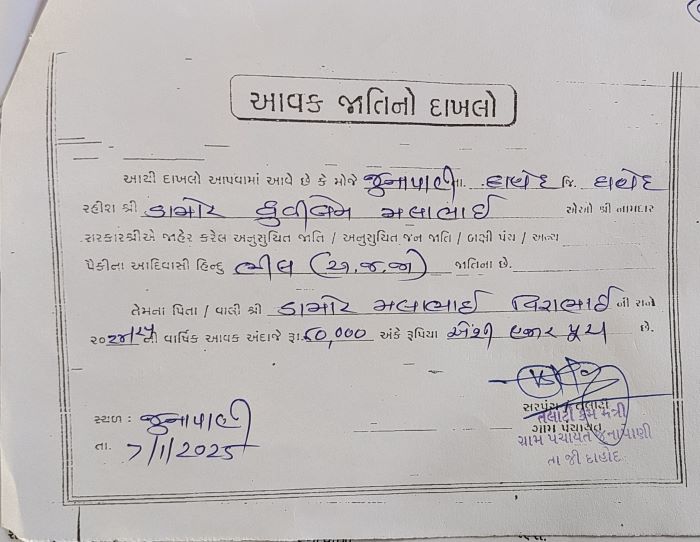 આવક જાતિનો દાખલો
આથી દાખલો આપવામાં આવે છે કે મોજે જુનાપાણી તા. દાહોદ જિ. દાહોદ
રહીશ શ્રી ડામોર ધ્રુવીબેન મલાભાઈ એઓ શ્રી નામદાર
સરકારશ્રીએ જાહેર કરેલ અનુસુચિત જાતિ / અનુસુચિત જન જાતિ / બક્ષી પંચ / અન્ય
પૈકીના આદિવાસી હિન્દુ ભીલ (અ.જ.જા) જાતિના છે.
તેમના પિતા / વાલી શ્રી ડામોર મલાભાઈ વિરાભાઈ ની સને
૨૦૨૪/૨૫ ની વાર્ષિક આવક અંદાજે રૂા. ૬૦,૦૦૦ અંકે રૂપિયા હજાર પુરા છે.
સ્થળ : જુનાપાણી
તા. 7/1/2025
સરપંચ / તલાટી
તલાટી કમ મંત્રી
ગ્રામ પંચાયત
ગ્રામ પંચાયત જુનાપાણી
તા જી દાહોદ